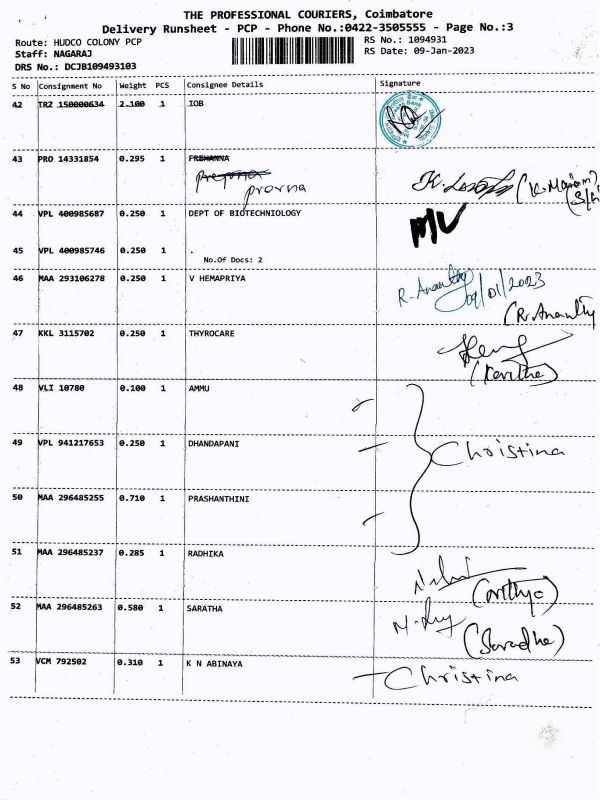 THE PROFESSIONAL COURIERS, Coimbatore
Delivery Runsheet - PCP - Phone No.:0422-3505555 - Page No.:3
Route: HUDCO COLONY PCP
RS No.: 1094931
Staff: NAGARAJ
RS Date: 09-Jan-2023
DRS No.: DCJB109493103
S No Consignment No Weight PCS Consignee Details Signature
42 TRZ 150000634 2.100 1 IOB
43 PRO 14331854 0.295 1
prerna
44 VPL 400985687 0.250 1 DEPT OF BIOTECHNIOLOGY
45 VPL 400985746 0.250 1 .
No.Of Docs: 2
46 MAA 293106278 0.250 1 V HEMAPRIYA
R. Ananthy 09/01/2023
(R. Ananthy
47 KKL 3115702 0.250 1 THYROCARE
(Kavitha)
48 VLI 10780 0.100 1 AMMU
49 VPL 941217653 0.250 1 DHANDAPANI
Christina
50 MAA 296485255 0.710 1 PRASHANTHINI
51 MAA 296485237 0.285 1 RADHIKA
52 MAA 296485263 0.580 1 SARATHA
(Saradha)
53 VCM 792502 0.310 1 K N ABINAYA
Christina